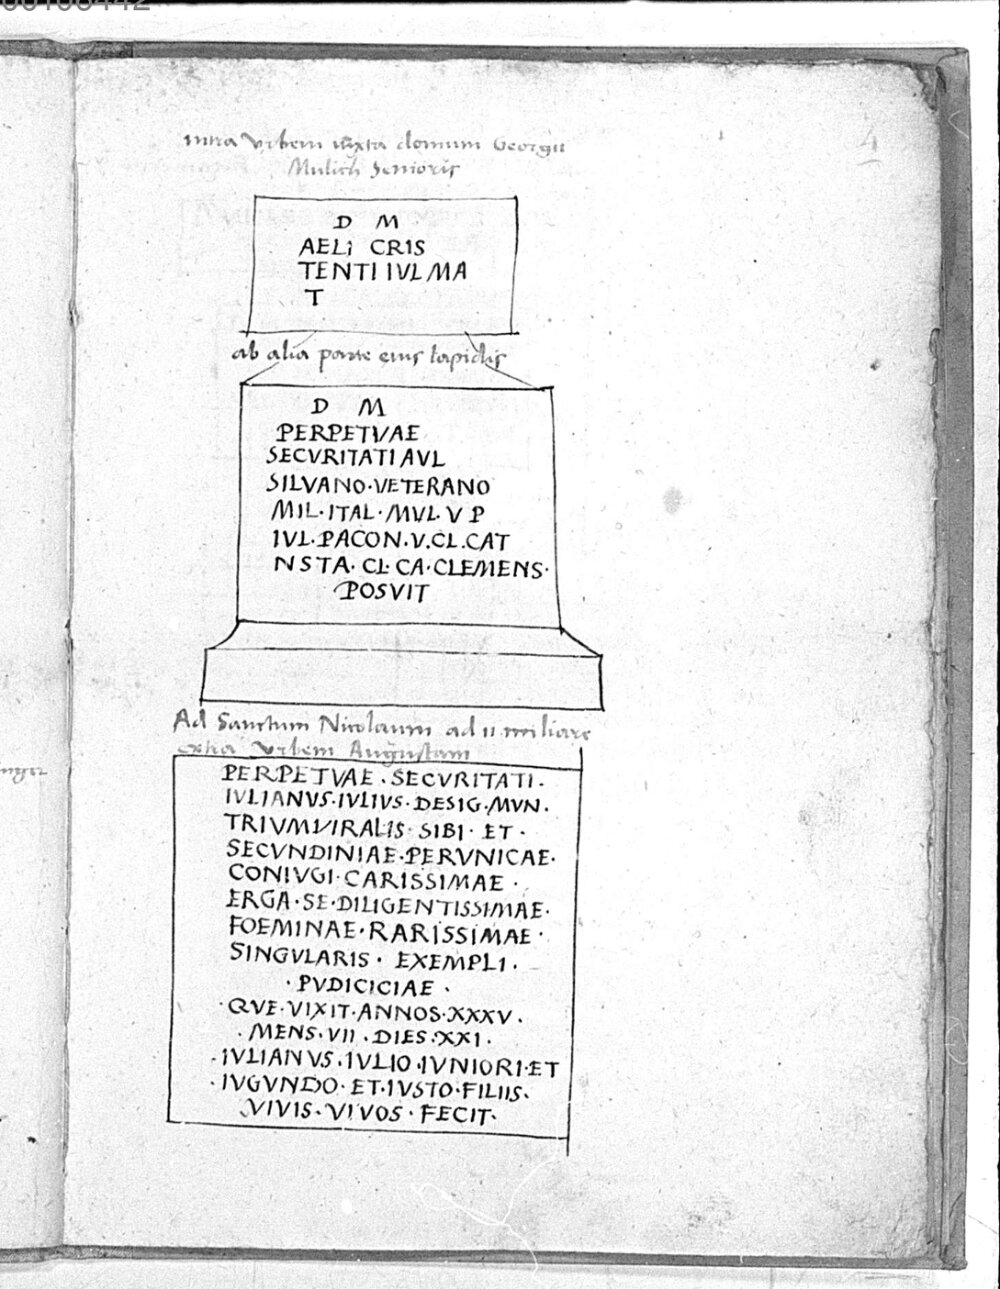 4
intra Vrbem iuxta domum Georgii
Mulich Senioris
D M
AELi CRIS
TENTI IVL MA
T
ab alia parte eius lapidis
D M
PERPETVAE
SECVRITATI AVL
SILVANO·VETERANO
MIL·ITAL·MVL·V P
IVL·PACON·V.CL.CAT
NSTA·CL·CA·CLEMENS·
POSVIT
Ad Sanctum Nicolaum ad II miliare
extra Vrbem Augustam
PERPETVAE·SECVRITATI·
IVLIANVS·IVLIVS·DESIG·MVN·
TRIVMVIRALIS·SIBI·ET·
SECVNDINIAE·PERVNICAE·
CONIVGI·CARISSIMAE·
ERGA·SE·DILIGENTISSIMAE·
FOEMINAE·RARISSIMAE·
SINGVLARIS·EXEMPLI·
·PVDICICIAE·
·QVE·VIXIT·ANNOS·XXXV·
·MENS·VII·DIES·XXI·
·IVLIANVS·IVLIO·IVNIORI·ET
·IVGVNDO·ET·IVSTO·FILIIS·
VIVIS·VIVOS·FECIT·